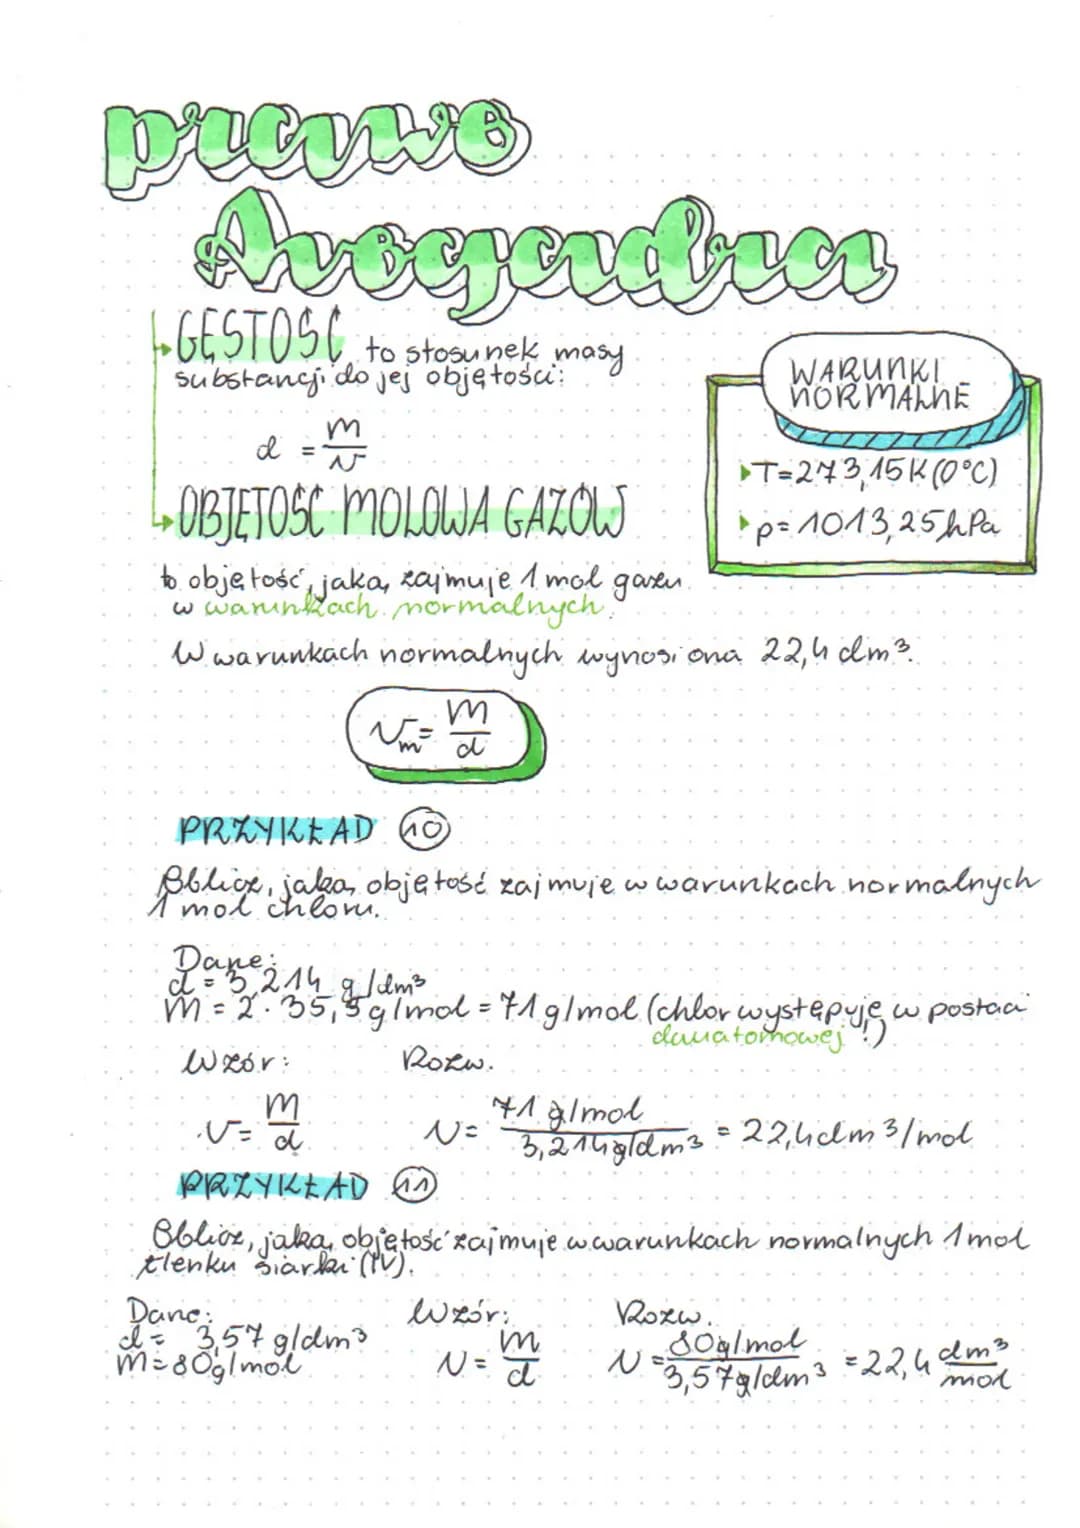 prawo
Avogadra
GĘSTOŚĆ to stosunek masy
substancji do jej objętości:
d = m/V
OBJĘTOŚĆ MOLOWA GAZÓW
to objętość, jaką zajmuje 1 mol gazu
w warunkach normalnych.
W warunkach normalnych wynosi ona 22,4 dm³.
WARUNKI
NORMALNE
T=273,15K (0°C)
p= 1013,25 hPa
Vm= M/d
PRZYKŁAD 10
Oblicz, jaką objętość zajmuje w warunkach normalnych
1 mol chloru.
Dane:
d = 3,214 g/dm³
M = 2·35,5g/mol = 71 g/mol (chlor występuje w postaci
dwuatomowej!)
Wzór: Rozw.
V= M/d V= 71 g/mol / 3,214g/dm³ = 22,4dm³/mol
PRZYKŁAD 11
Oblicz, jaką objętość zajmuje w warunkach normalnych 1 mol
tlenku siarki (IV).
Dane: Wzór: Rozw.
d = 3,57 g/dm³
M=80g/mol V = M/d V = 80g/mol / 3,57g/dm³ = 22,4 dm³/mol